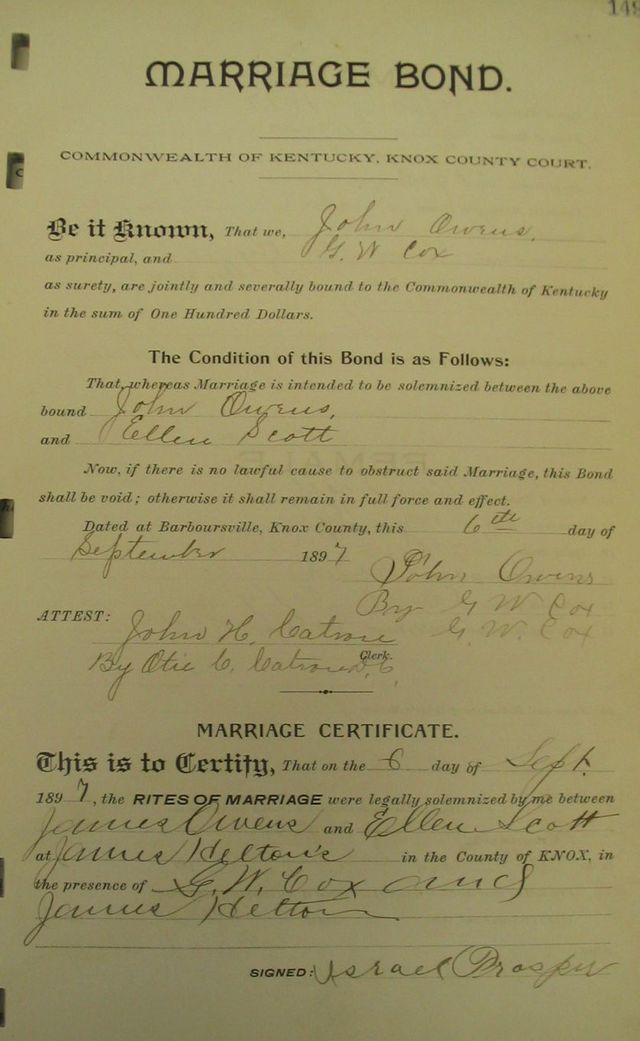 149
MARRIAGE BOND.
COMMONWEALTH OF KENTUCKY, KNOX COUNTY COURT.
Be it Known, That we, John Owens,
as principal, and G. W Cox
as surety, are jointly and severally bound to the Commonwealth of Kentucky
in the sum of One Hundred Dollars.
The Condition of this Bond is as Follows:
That, whereas Marriage is intended to be solemnized between the above
bound John Owens,
and Ellen Scott
Now, if there is no lawful cause to obstruct said Marriage, this Bond
shall be void; otherwise it shall remain in full force and effect.
Dated at Barboursville, Knox County, this 6th day of
September 1897
John Owens
By G W Cox
ATTEST: John H. Catron G. W. Cox
By Otie C. Catron D.C. Clerk.
MARRIAGE CERTIFICATE.
This is to Certify, That on the 6 day of Sept.
1897, the RITES OF MARRIAGE were legally solemnized by me between
James Owens and Ellen Scott
at James Helton's in the County of KNOX, in
the presence of G. W. Cox and
James Helton
SIGNED: Israel Prosper